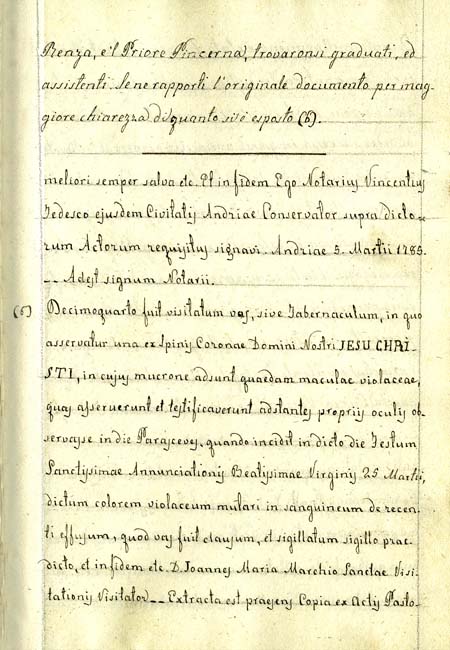 Renza, e'l Priore Pincerna, trovaronsi graduati, ed
assistenti. Se ne rapporti l'originale documento per mag-
giore chiarezza di quanto si è esposto (b).
meliori semper salva etc. Et in fidem Ego Notarius Vincentius
Tedesco ejusdem Civitatis Andriae Conservator supra dicto-
rum Actorum requisitus signavi. Andriae 5. Martii 1785.
-- Adest signum Notarii.
(b) Decimoquarto fuit visitatum vas, sive Tabernaculum, in quo
asservatur una ex Spinis Coronae Domini Nostri JESU CHRI-
STI, in cujus mucrone adsunt quaedam maculae violaceae,
quas asseruerunt et testificaverunt adstantes propriis oculis ob-
servasse in die Parasceves, quando incidit in dicto die Festum
Sanctissimae Annunciationis Beatissimae Virginis 25 Martii,
dictum colorem violaceum mutari in sanguineum de recen-
ti effusum, quod vas fuit clausum, et sigillatum sigillo prae-
dicto, et in fidem etc. D. Joannes Maria Marchio Sanctae Visi-
tationis Visitator -- Extracta est praesens Copia ex Actis Pasto-